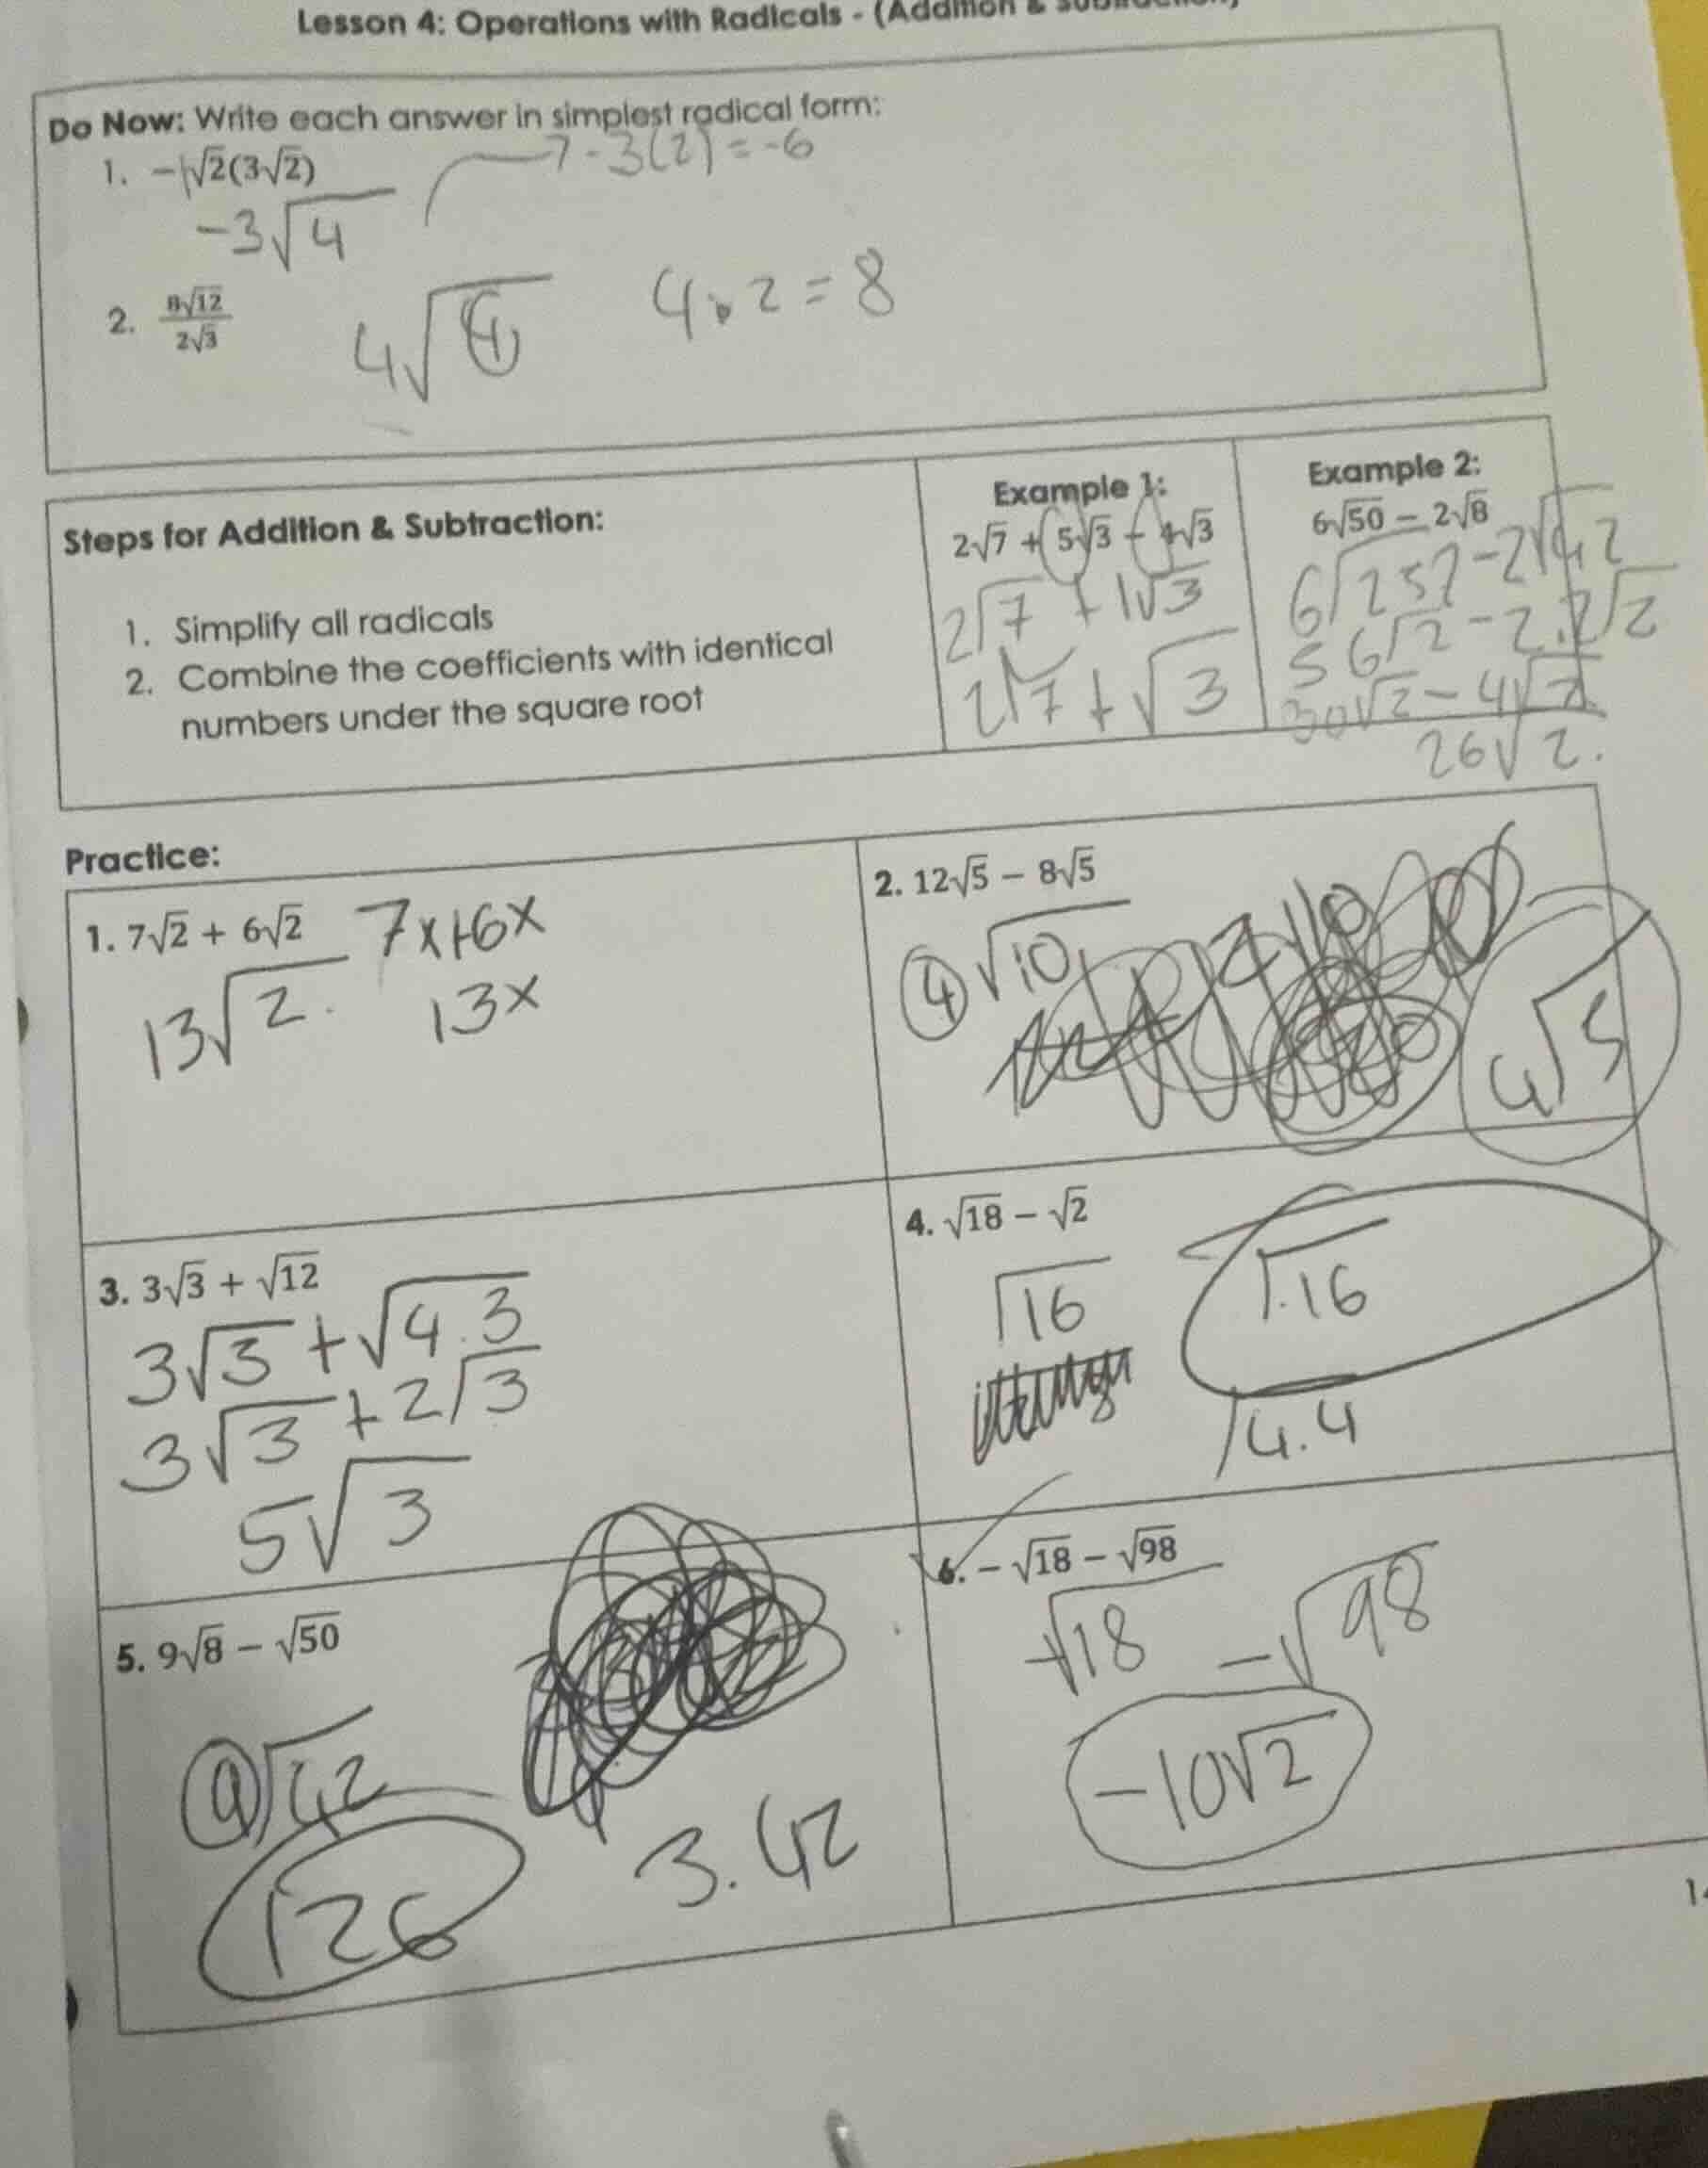 Lesson 4: Operations with Radicals - (Addition & Subtraction)
Do Now: Write each answer in simplest radical form:
1. -1√2(3√2)
→ -3(2) = -6
-3√4
2. 8√12 / 2√3
4√4
4 · 2 = 8
Steps for Addition & Subtraction:
1. Simplify all radicals
2. Combine the coefficients with identical
numbers under the square root
Example 1:
2√7 + 5√3 - 4√3
2√7 + 1√3
2√7 + √3
Example 2:
6√50 - 2√8
6√25 2 - 2√4 2
5 6√2 - 2.2√2
30√2 - 4√2
26√2.
Practice:
1. 7√2 + 6√2
7x+6x
13√2.
13x
2. 12√5 - 8√5
4 √10
4√5
3. 3√3 + √12
3√3 + √4.3
3√3 + 2√3
5√3
4. √18 - √2
√16
√16
√4.4
5. 9√8 - √50
9√42
126
3.42
6. - √18 - √98
-√18 - √98
-10√2